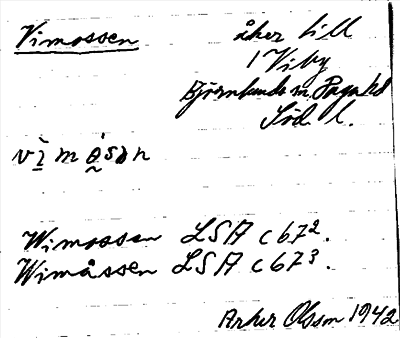 Vimossen
åker till
1 Viby
Björnlunda sn. Daga hd
Söd. l.
vìmåsən
Wimossen LSA c 67².
Wimåssen LSA c 67³.
Olsson 1942